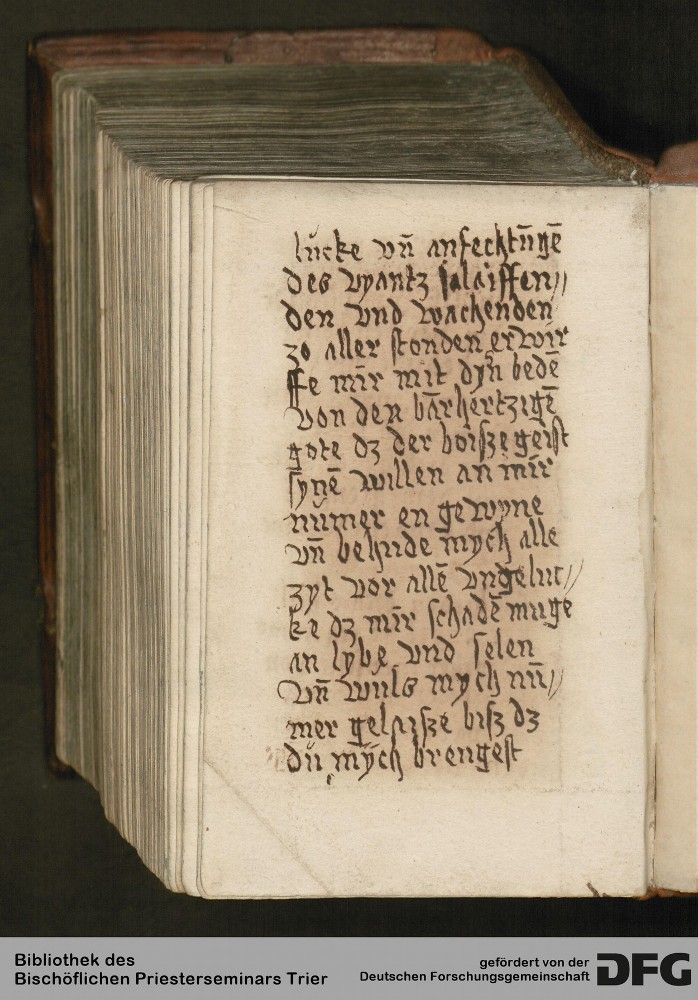 lucke vn̄ anfechtūgē
des vyantz slaiffen//
den vnd wachenden
zo aller stonden erwir
ffe mir mit dyn bedē
von den bārhertzigē
gote dz der boisze geist
synē willen an mir
nūmer en gewyne
vn̄ behude mych alle
zyt vor allē vngeluc//
ke dz mir schadē muge
an lybe vnd selen
vn̄ wuls mych nū//
mer gelaisze bisz dz
du mych brengest
Bibliothek des
Bischöflichen Priesterseminars Trier
gefördert von der
Deutschen Forschungsgemeinschaft DFG